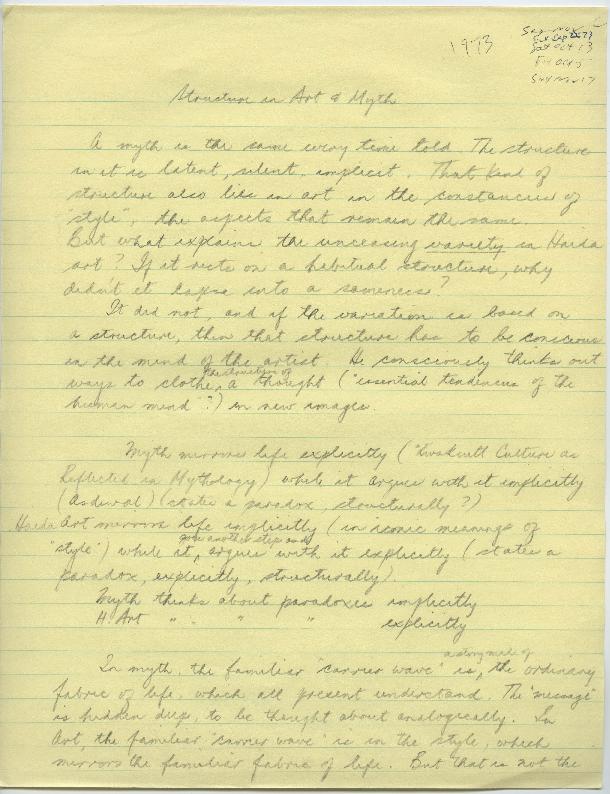 1973
Sat Oct 13
Structure in Art & Myth
A myth is the same every time told. The structure
in it is latent, silent, implicit. That kind of
structure also lies in art in the constancies of
"style", the aspects that remain the same.
But what explains the unceasing variety in Haida
art? If it rests on a habitual structure, why
didn't it lapse into a sameness?
It did not, and if the variation is based on
a structure, then that structure has to be conscious
in the mind of the artist. He consciously thinks out
ways to clothe the structure of a thought ("essential tendencies of the
human mind"?) in new images.
Myth mirrors life explicitly ("Kwakiutl Culture as
Reflected in Mythology) while it argues with it implicitly
(Asdiwal) (states a paradox, structurally?)
Haida Art mirrors life implicitly (in iconic meanings of
"style") while it goes another step and argues with it explicitly (states a
paradox, explicitly, structurally).
Myth thinks about paradoxes implicitly
H. Art " " " explicitly
In myth, the familiar "carrier wave" is a story made of the ordinary
fabric of life, which all present understand. The "message"
is hidden deep, to be thought about analogically. In
Art, the familiar "carrier wave" is in the style, which
mirrors the familiar fabric of life. But that is not the